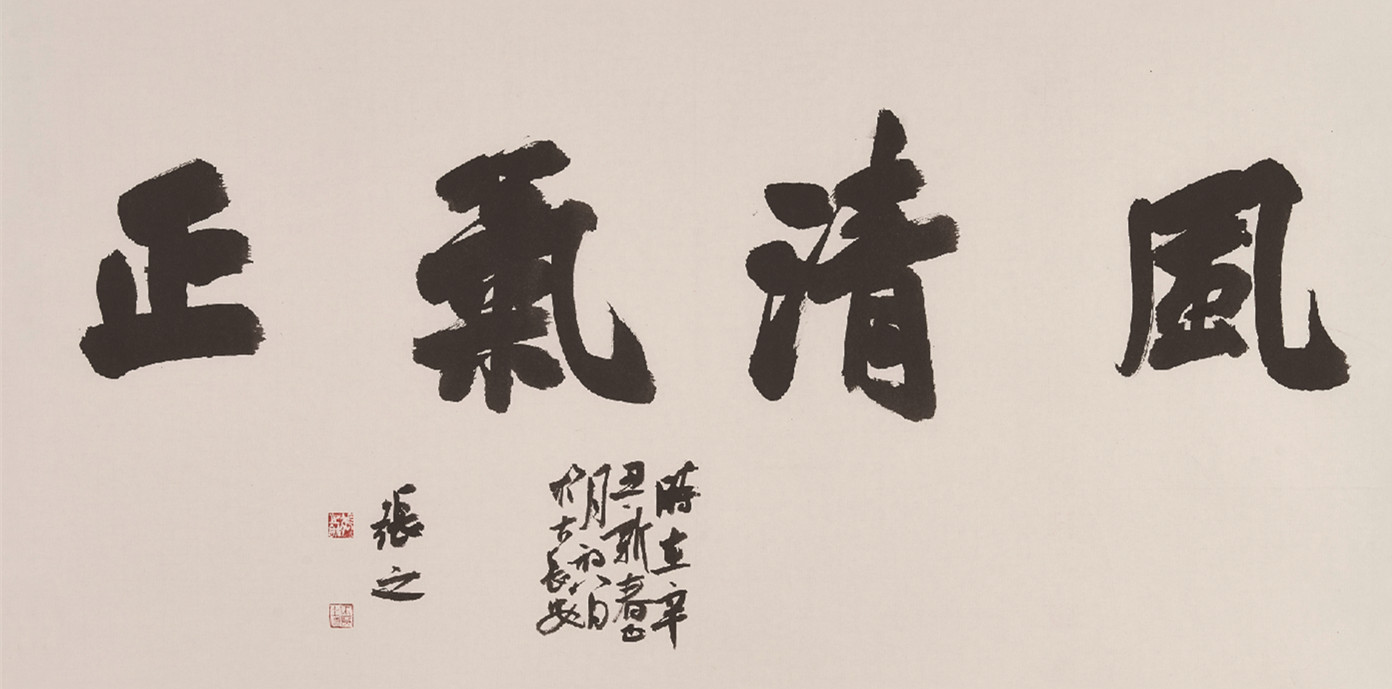 風清氣正
時在辛
丑新春正
月初八日
於古長安
張之